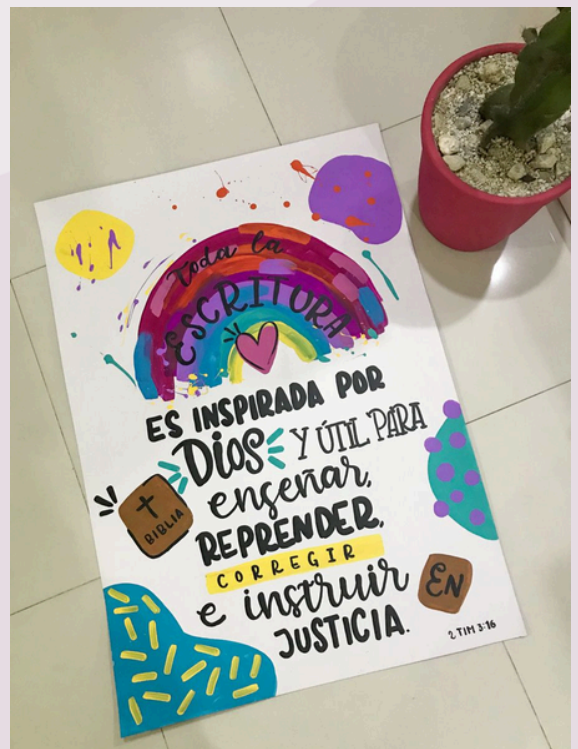 Toda la
ESCRITURA
ES INSPIRADA POR
DIOS Y ÚTIL PARA
enseñar,
BIBLIA
REPRENDER,
CORREGIR
e instruir EN
JUSTICIA.
2 TIM 3:16